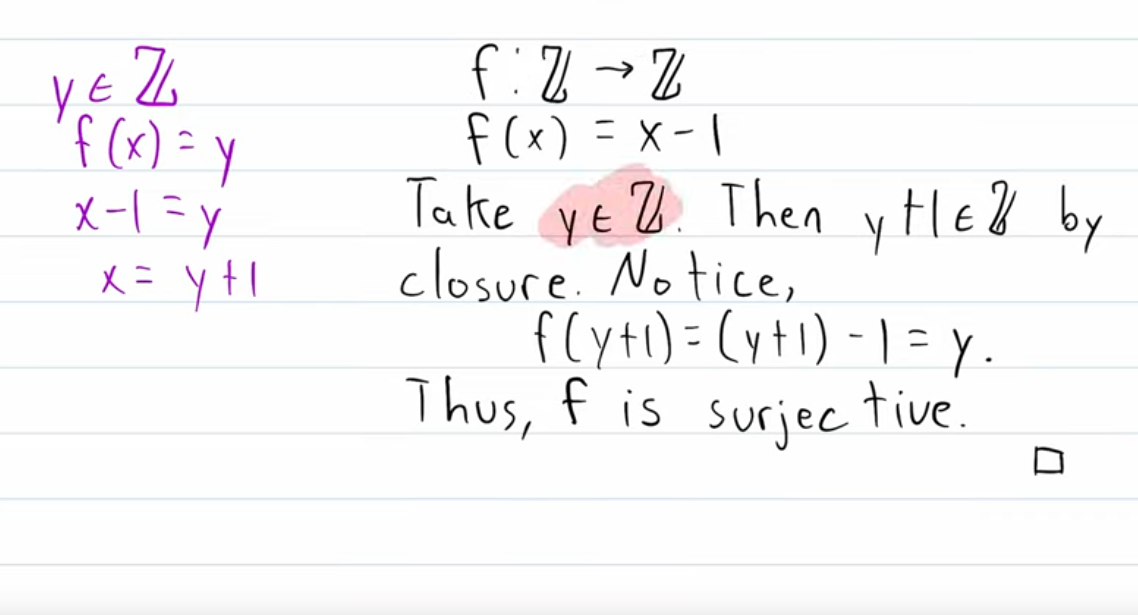 y ∈ ℤ
f(x) = y
x-1 = y
x = y+1
f : ℤ → ℤ
f(x) = x-1
Take y ∈ ℤ. Then y+1 ∈ ℤ by
closure. Notice,
f(y+1) = (y+1) - 1 = y.
Thus, f is surjective.
□